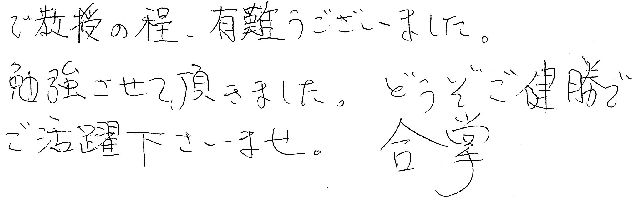 ご教授の程、有難うございました。
勉強させて頂きました。どうぞご健勝で
ご活躍下さいませ。 合掌